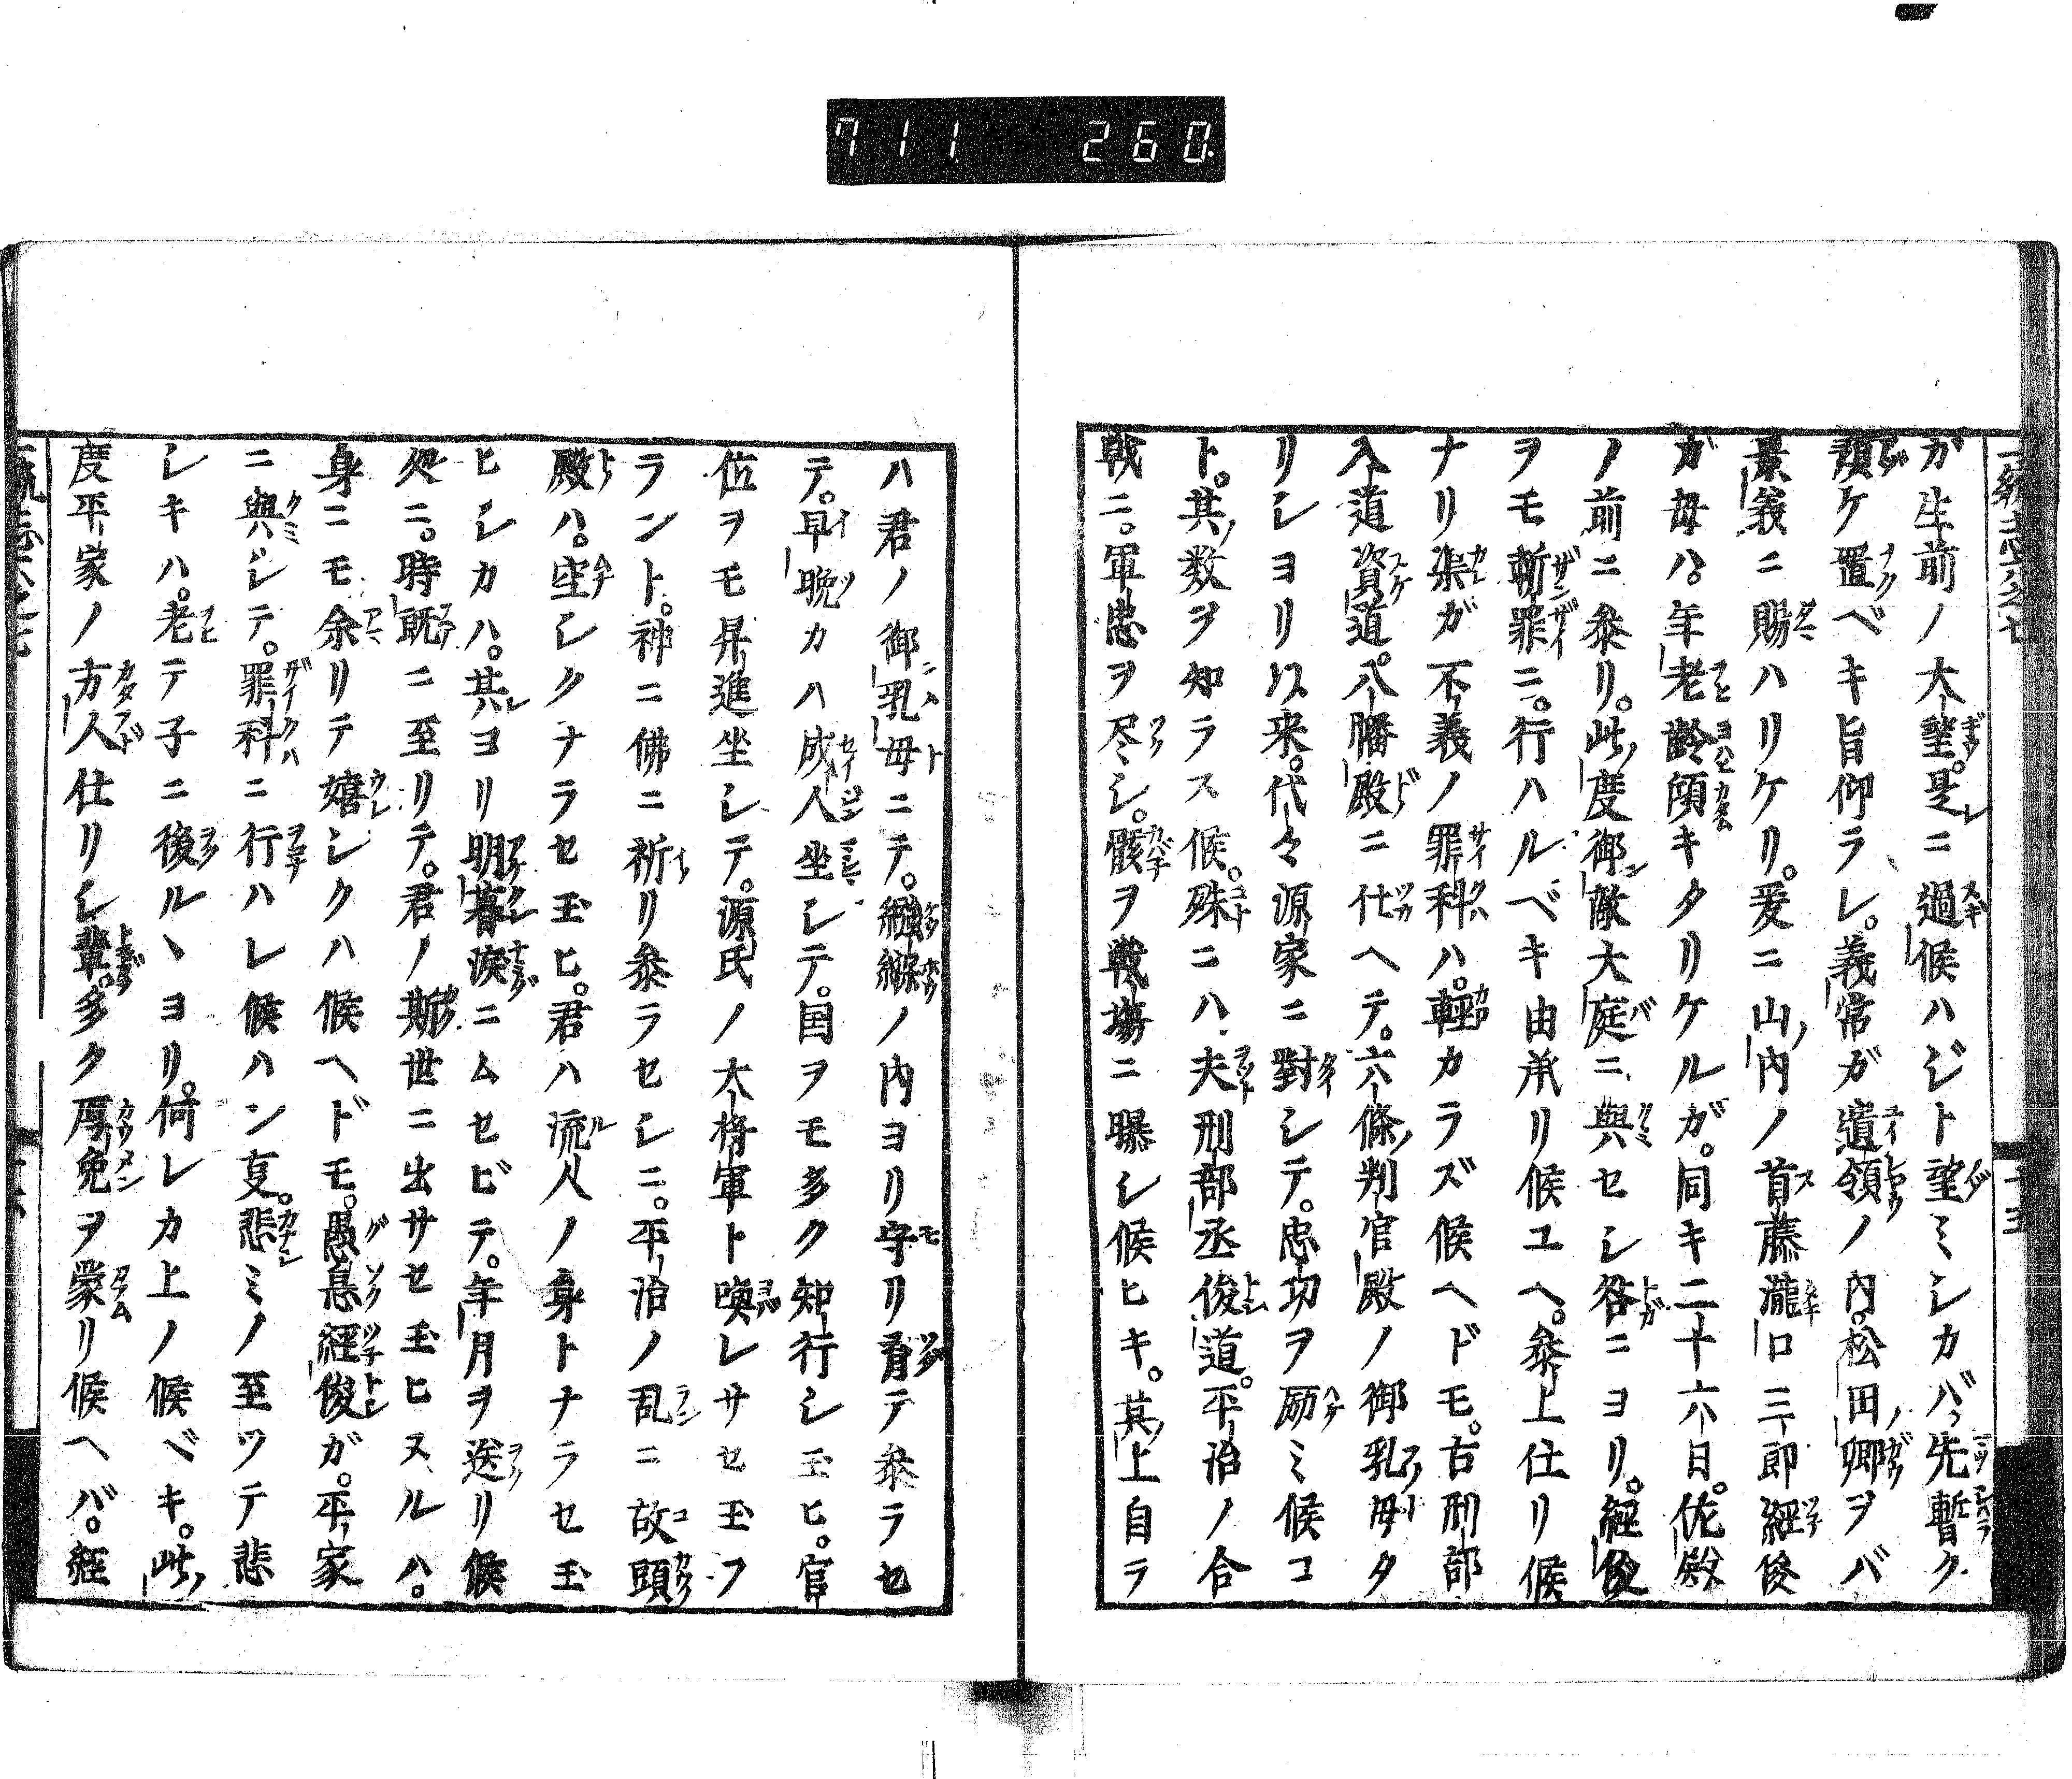 711 260.
ガ生前ノ大望。是ニ過候ハジト望ミシカバ。先暫ク
預ケ置ベキ旨仰ラレ。義常ガ遺領ノ內。松田卿ヲバ
景義ニ賜ハリケリ。爰ニ山內ノ首藤瀧口三郎経俊
ガ母ハ。年老齢傾キタリケルガ。同キ二十六日。佐殿
ノ前ニ參リ。此度御敵大庭ニ與セシ咎ニヨリ。經俊
ヲモ斬罪ニ。行ハルベキ由承リ候ユヘ。參上仕リ候
ナリ渠ガ不義ノ罪科ハ。輕カラズ候ヘドモ。古刑部
入道資道。八幡殿ニ仕ヘテ。六條判官殿ノ御乳母タ
リシヨリ以来。代々源家ニ對シテ。忠功ヲ励ミ候コ
ト。其数ヲ知ラス候。殊ニハ夫刑部丞俊道。平治ノ合
戦ニ。軍忠ヲ尽シ。骸ヲ戰塲ニ曝シ候ヒキ。其上自ラ
ハ君ノ御乳母ニテ。繈緥ノ內ヨリ守リ育テ參ラセ
テ。早晩カハ成人坐シテ。国ヲモ多ク知行シ玉ヒ。官
位ヲモ昇進坐シテ。源氏ノ大将軍ト喚レサセ玉フ
ラント。神ニ佛ニ祈リ參ラセシニ。平治ノ乱ニ故頭
殿ハ。空シクナラセ玉ヒ。君ハ流人ノ身トナラセ玉
ヒシカハ。其ヨリ明暮涙ニムセビテ。年月ヲ送リ候
処ニ。時既ニ至リテ。君ノ斯世ニ出サセ玉ヒヌルハ。
身ニモ余リテ嬉シクハ候ヘドモ。愚息經俊ガ。平家
ニ與シテ。罪科ニ行ハレ候ハン叓。悲ミノ至ツテ悲
シキハ。老テ子ニ後ルヽヨリ。何レカ上ノ候ベキ。此
度平家ノ方人仕リシ輩。多ク厚免ヲ蒙リ候ヘバ。經